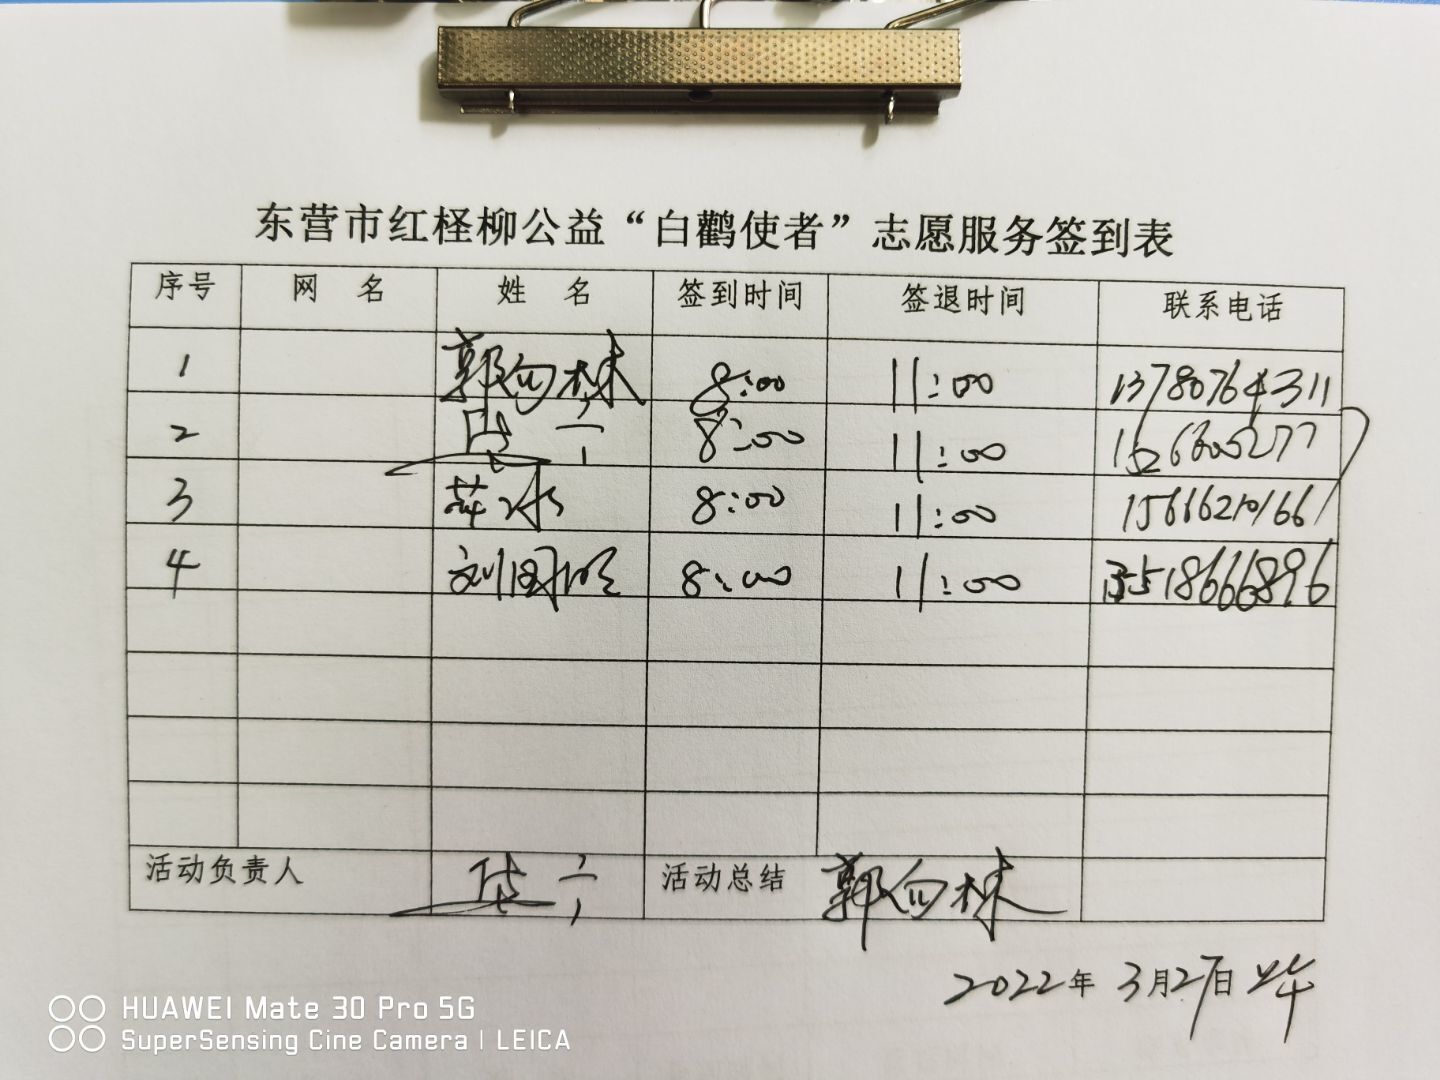 东营市红柽柳公益“白鹳使者”志愿服务签到表
序号 网 名 姓 名 签到时间 签退时间 联系电话
1 郭向株 8:00 11:00 13780764311
2 8:00 11:00
3 8:00 11:00 15666210166
4 刘国明 8:00 11:00 18666896
活动负责人 活动总结 郭向株
2022年3月27日
HUAWEI Mate 30 Pro 5G
SuperSensing Cine Camera | LEICA